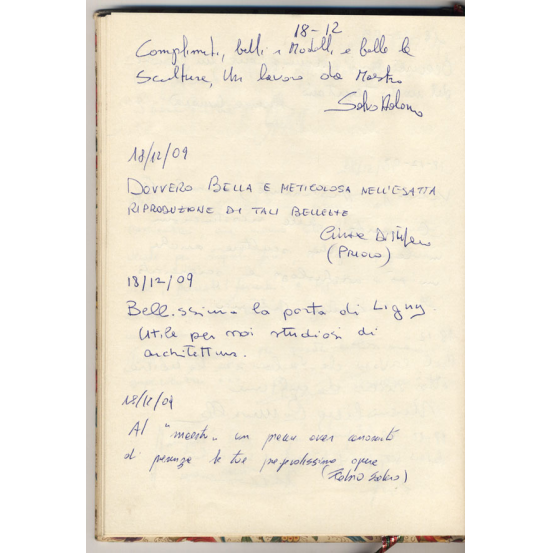 18-12
Complimenti, belli i Modelli e belle le
Sculture, Un lavoro da Maestro
Salvo Adorno
18/12/09
DAVVERO BELLA E METICOLOSA NELL'ESATTA
RIPRODUZIONE DI TALI BELLEZZE
(PRIOLO)
18/12/09
Bellissima la porta di Ligny.
Utile per noi studiosi di
architettura.
18/12/09
Al "maestro" un per aver
di presenza le tue opere